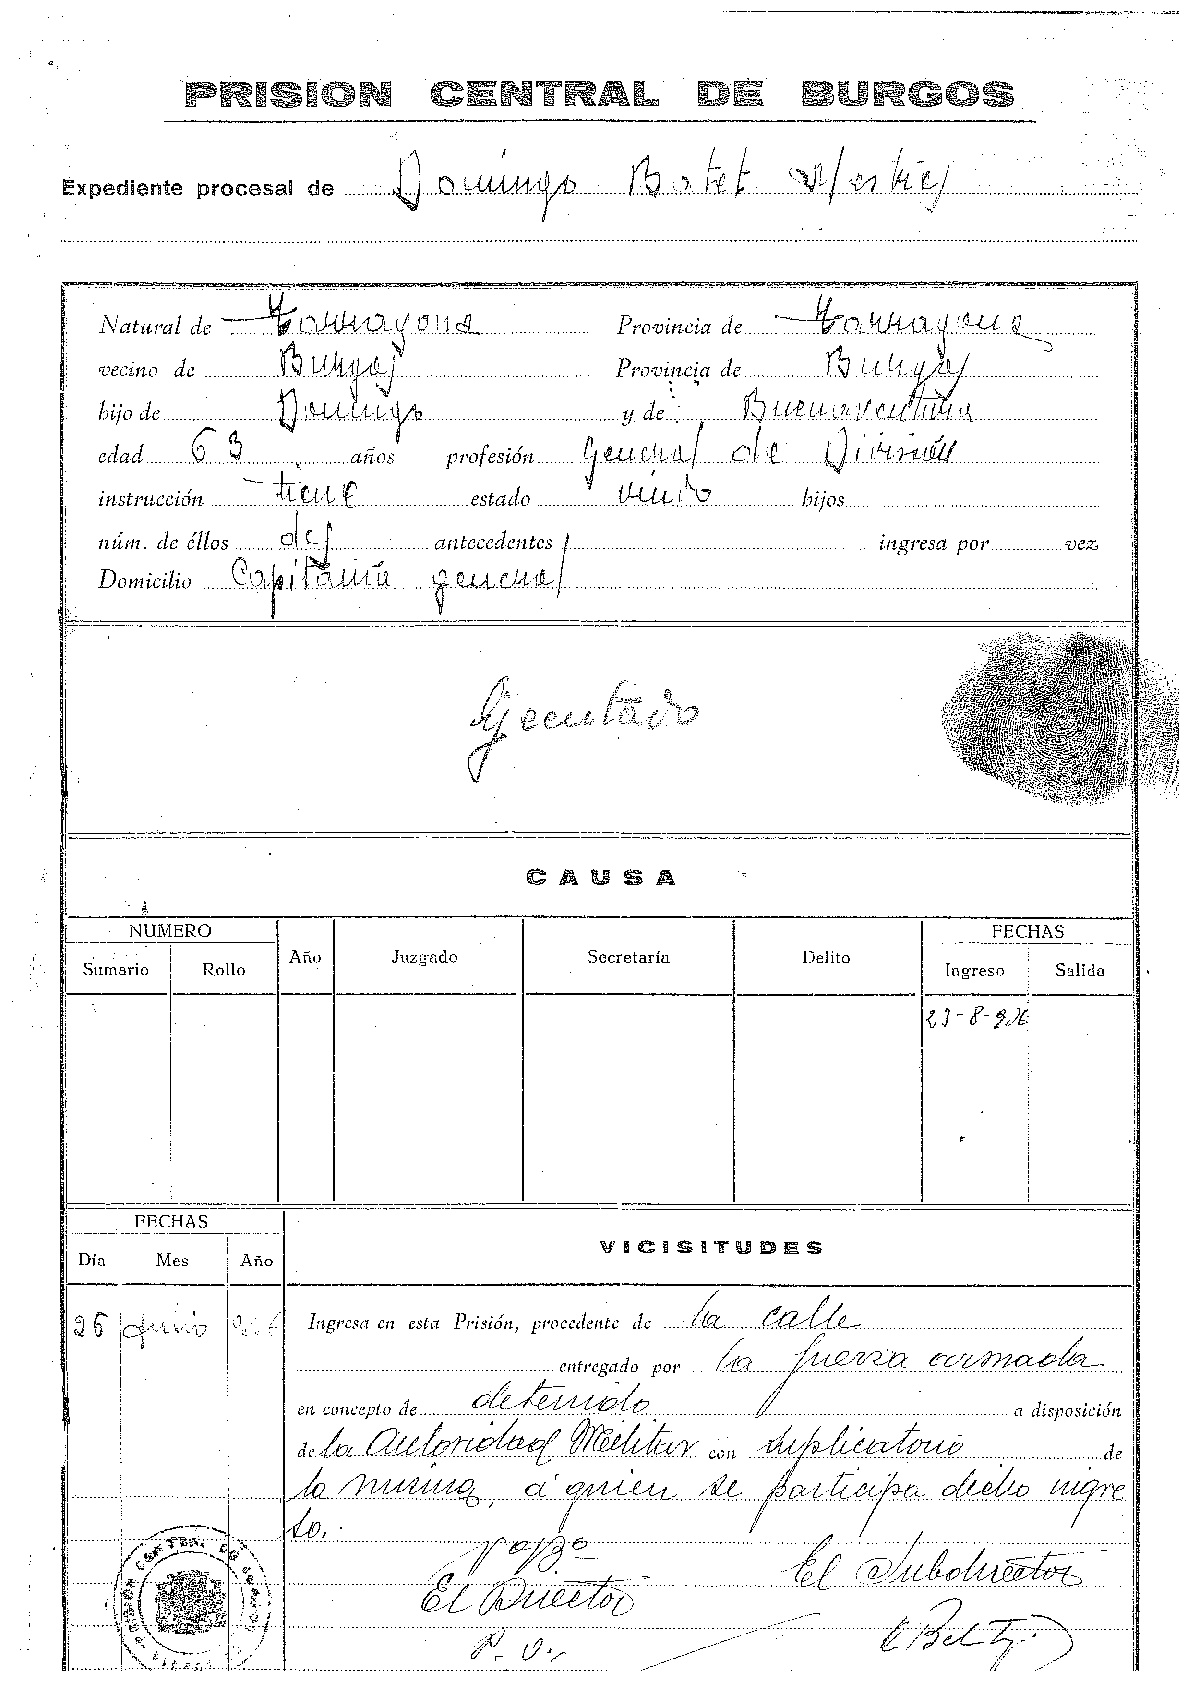 PRISION CENTRAL DE BURGOS
Expediente procesal de Domingo Batet Mestres
Natural de Tarragona Provincia de Tarragona
vecino de Burgos Provincia de Burgos
hijo de Domingo y de Buenaventura
edad 63 años profesión General de División
instrucción tiene estado viudo hijos
núm. de éllos dos antecedentes ingresa por vez
Domicilio Capitania general
Ejecutado
CAUSA
NUMERO FECHAS
Sumario Rollo Año Juzgado Secretaría Delito Ingreso Salida
FECHAS
VICISITUDES
Día Mes Año
Ingresa en esta Prisión, procedente de la calle
entregado por la fuerza armada
en concepto de detenido a disposición
de la Autoridad Militar con duplicatorio de
la misma, a quien se participa dicho ingre
so.
VºBº
El Director El Subdirector
P. O.